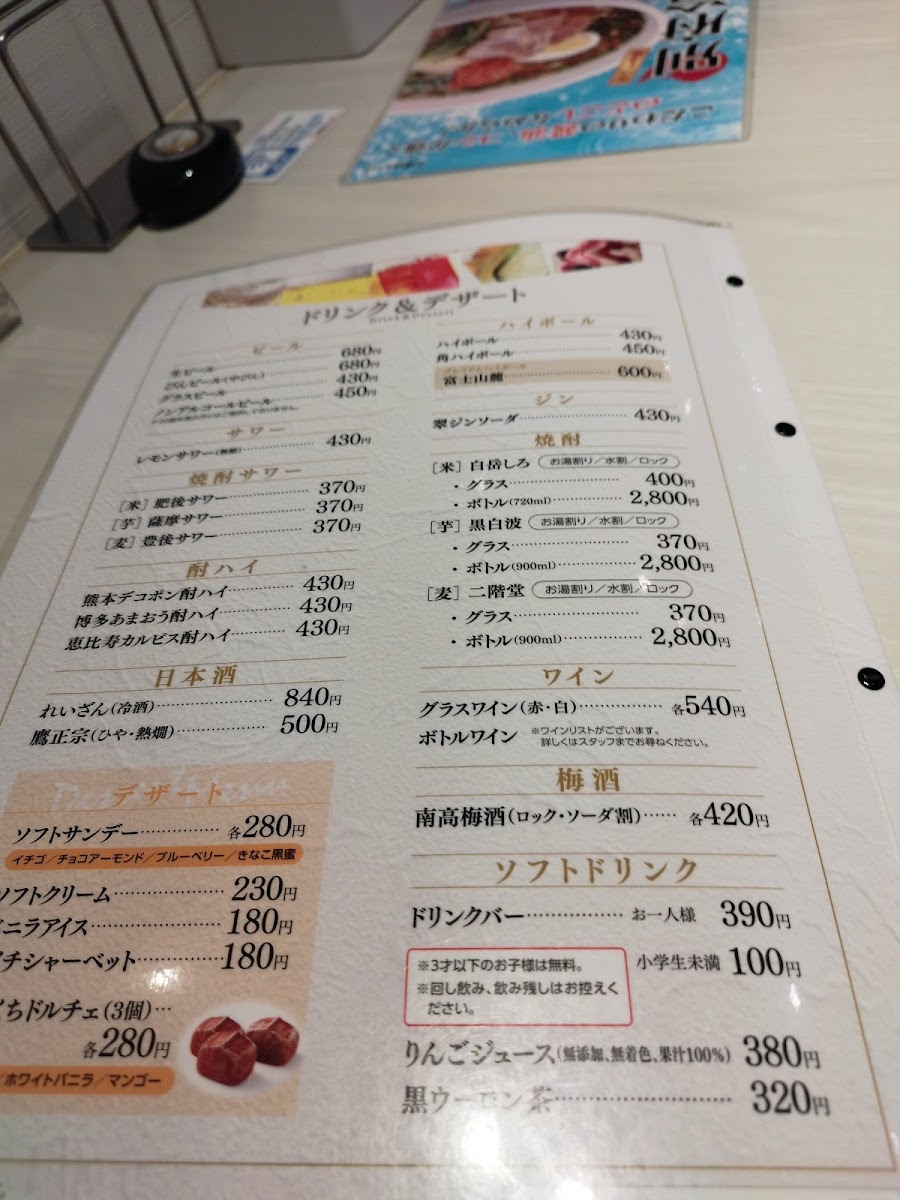 別府冷
こだわりの醤油
ドリンク&デザート
Drink & Dessert
ビール
生ビール 680円
びんビール(中びん) 680円
グラスビール 430円
ノンアルコールビール 450円
サワー
レモンサワー(無糖) 430円
焼酎サワー
[米] 肥後サワー 370円
[芋] 薩摩サワー 370円
[麦] 豊後サワー 370円
酎ハイ
熊本デコポン酎ハイ 430円
博多あまおう酎ハイ 430円
恵比寿カルピス酎ハイ 430円
日本酒
れいざん(冷酒) 840円
鷹正宗(ひや・熱燗) 500円
デザート
ソフトサンデー 各280円
イチゴ/チョコアーモンド/ブルーベリー/きなこ黒蜜
ソフトクリーム 230円
ニラアイス 180円
チシャーベット 180円
くちドルチェ(3個)
各280円
ホワイトバニラ/マンゴー
ハイボール
ハイボール 430円
角ハイボール 450円
プレミアムハイボール
富士山麓 600円
ジン
翠ジンソーダ 430円
焼酎
[米] 白岳しろ お湯割り/水割/ロック
・グラス 400円
・ボトル(720ml) 2,800円
[芋] 黒白波 お湯割り/水割/ロック
・グラス 370円
・ボトル(900ml) 2,800円
[麦] 二階堂 お湯割り/水割/ロック
・グラス 370円
・ボトル(900ml) 2,800円
ワイン
グラスワイン(赤・白) 各540円
ボトルワイン ※ワインリストがございます。
詳しくはスタッフまでお尋ねください。
梅酒
南高梅酒(ロック・ソーダ割) 各420円
ソフトドリンク
ドリンクバー お一人様 390円
小学生未満 100円
※3才以下のお子様は無料。
※回し飲み、飲み残しはお控えく
ださい。
りんごジュース(無添加、無着色、果汁100%) 380円
黒ウーロン茶 320円